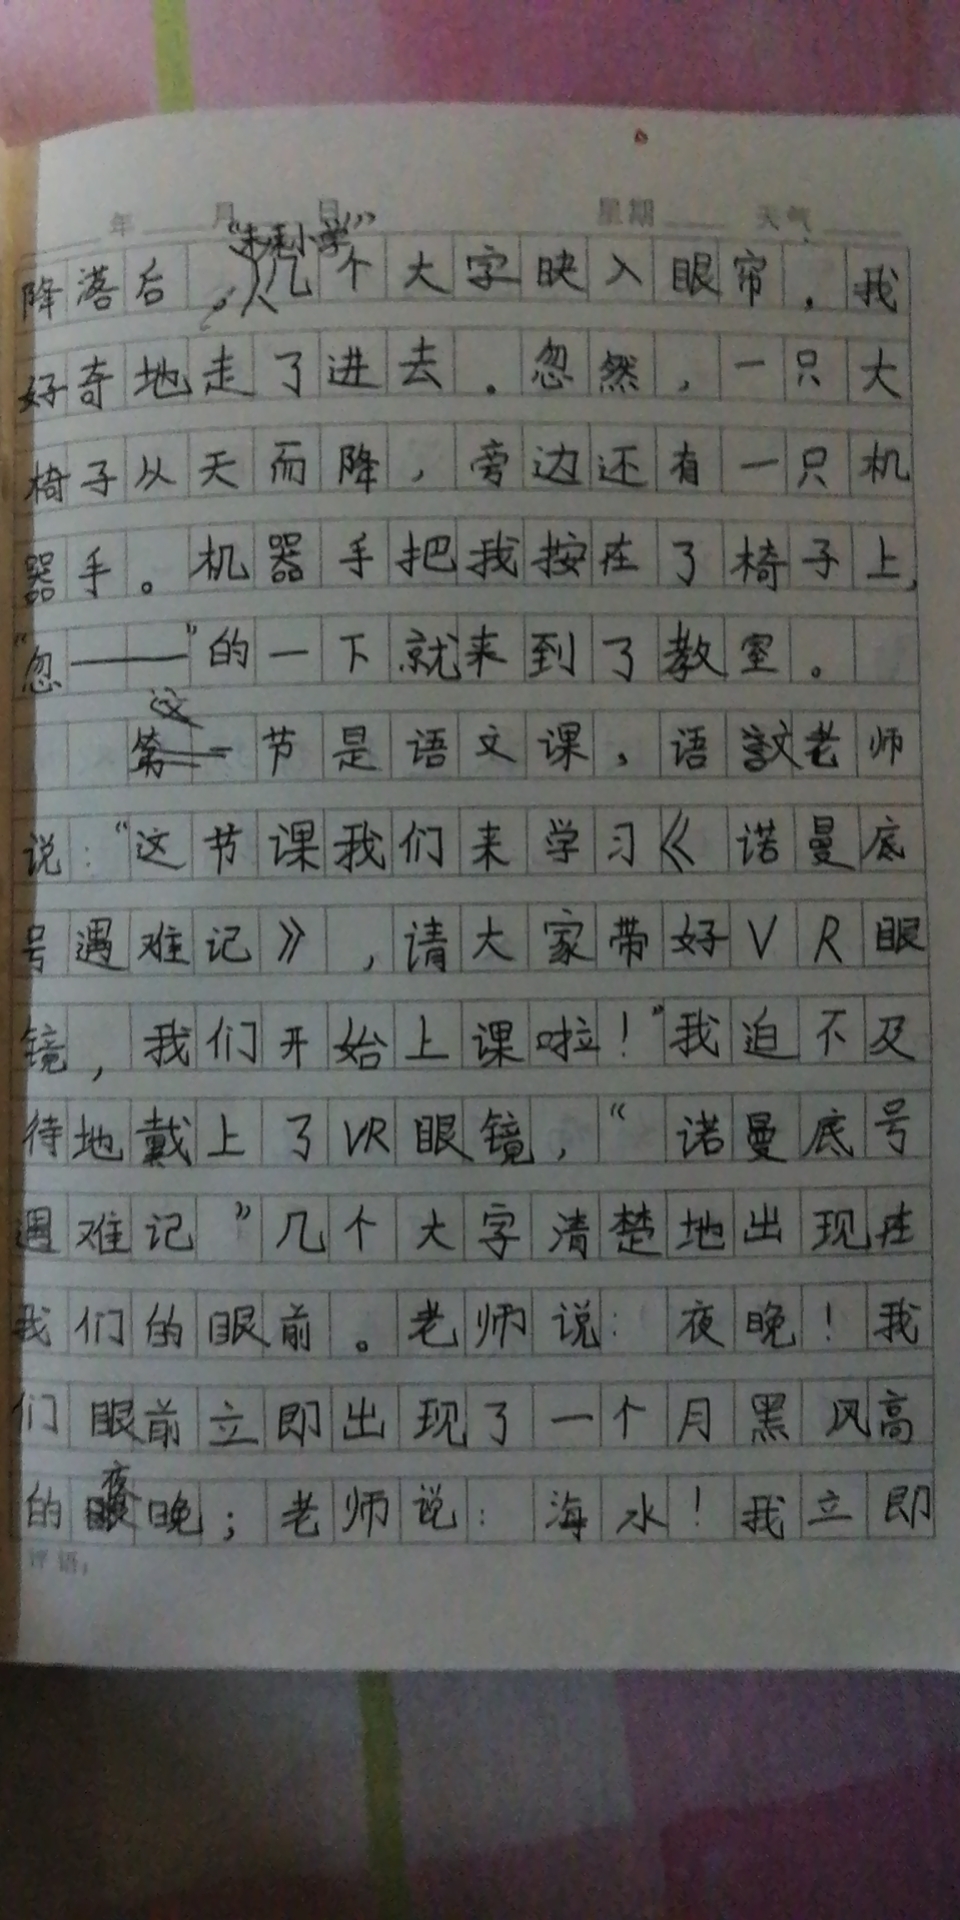 年 月 日 星期 天气
“未来小学”
降落后，几个大字映入眼帘.我
好奇地走了进去.忽然,一只大
椅子从天而降,旁边还有一只机
器手。机器手把我按在了椅子上,
“忽——”的一下就来到了教室。
这一节是语文课,语文老师
说:“这节课我们来学习《诺曼底
号遇难记》,请大家带好VR眼
镜,我们开始上课啦!”我迫不及
待地戴上了VR眼镜,“诺曼底号
遇难记”几个大字清楚地出现在
我们的眼前。老师说:夜晚!我
们眼前立即出现了一个月黑风高
的夜晚;老师说:海水!我立即
评语: